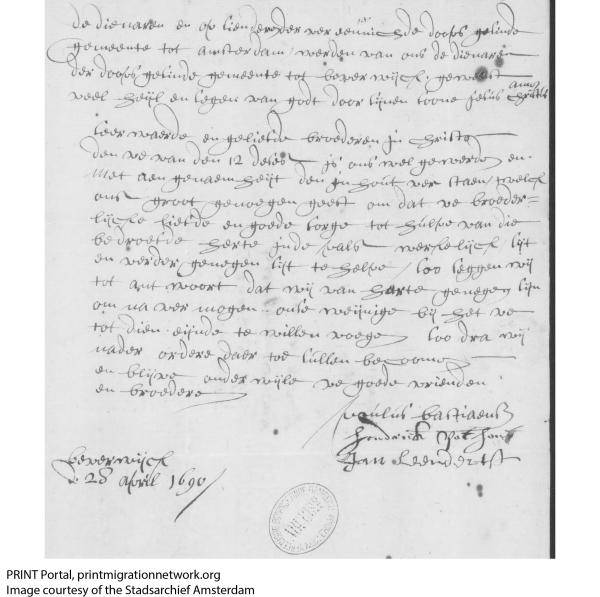 de dienaren en op sienders der vereenichde doops gesinde
gemeente tot amsterdam, werden van ons de dienaren
der doops gesinde gemeente tot beverwijck, gewenst
veel heijl en segen van godt door sijnen soone Jesus Christus
amen
seer waerde en geliefde broederen in Christo
den uwe van den 12 deses is ons wel geworden en
met aengenaemheijt den inhout verstaen, welck
ons groot genoegen geeft om dat uwe broeder-
lijcke liefde en goede sorge tot hulpe van die
bedroefde herte inde pals werckelijck sijt
en verder genegen sijt te helpe, soo seggen wij
tot antwoort dat wij van harte genegen sijn
om na vermogen onse weijnige bij het uwe
tot dien eijnde te willen voege soo dra wij
nader ordere daer toe sullen becoomen
en blijve onder wijle uwe goede vrienden
en broedere
paulus bastiaensz
hendrick
Jan Leendertsz
beverwijck
28 april 1690
PRINT Portal, printmigrationnetwork.org
Image courtesy of the Stadsarchief Amsterdam